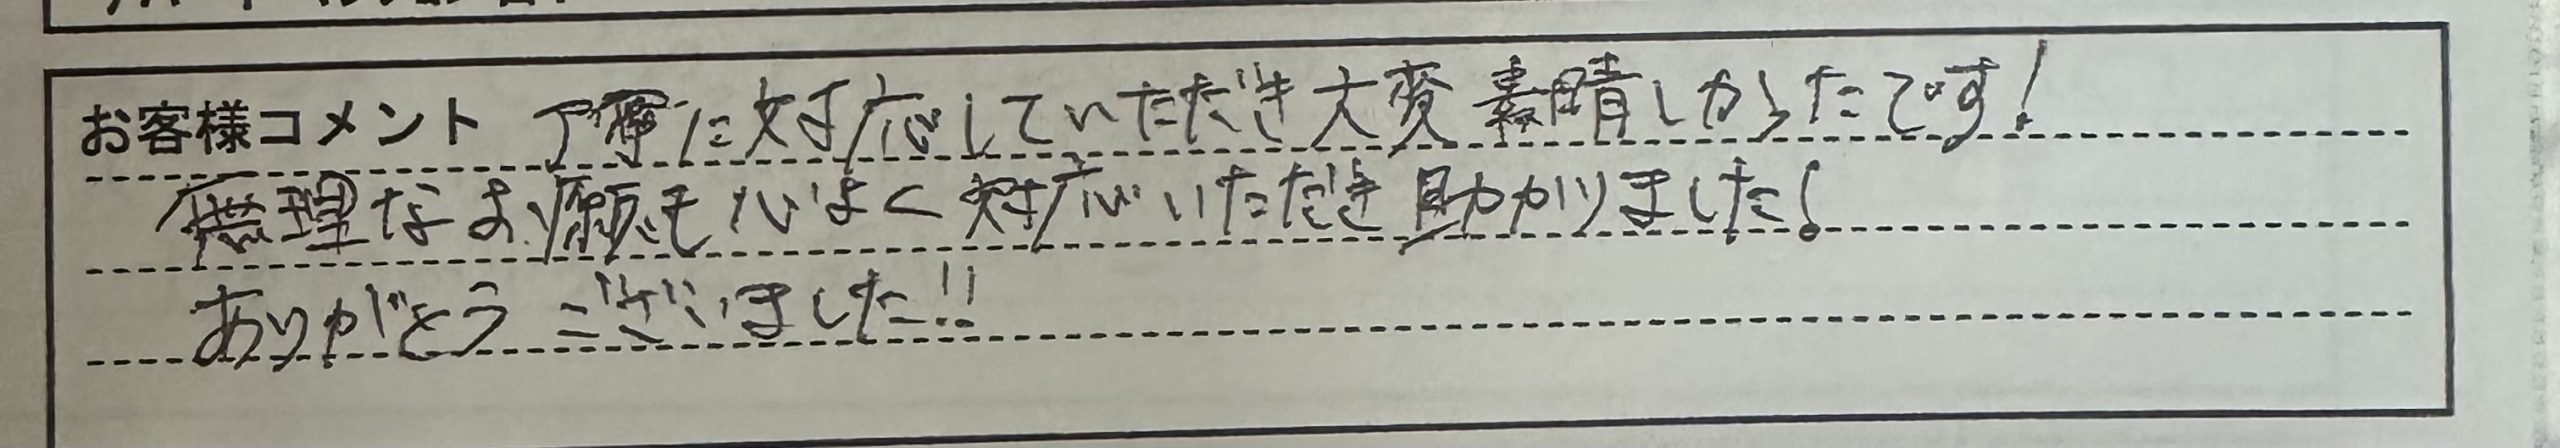 お客様コメント 丁寧に対応していただき大変素晴しかったです!
無理なお願も心よく対応いただき助かりました!
ありがとうございました!!